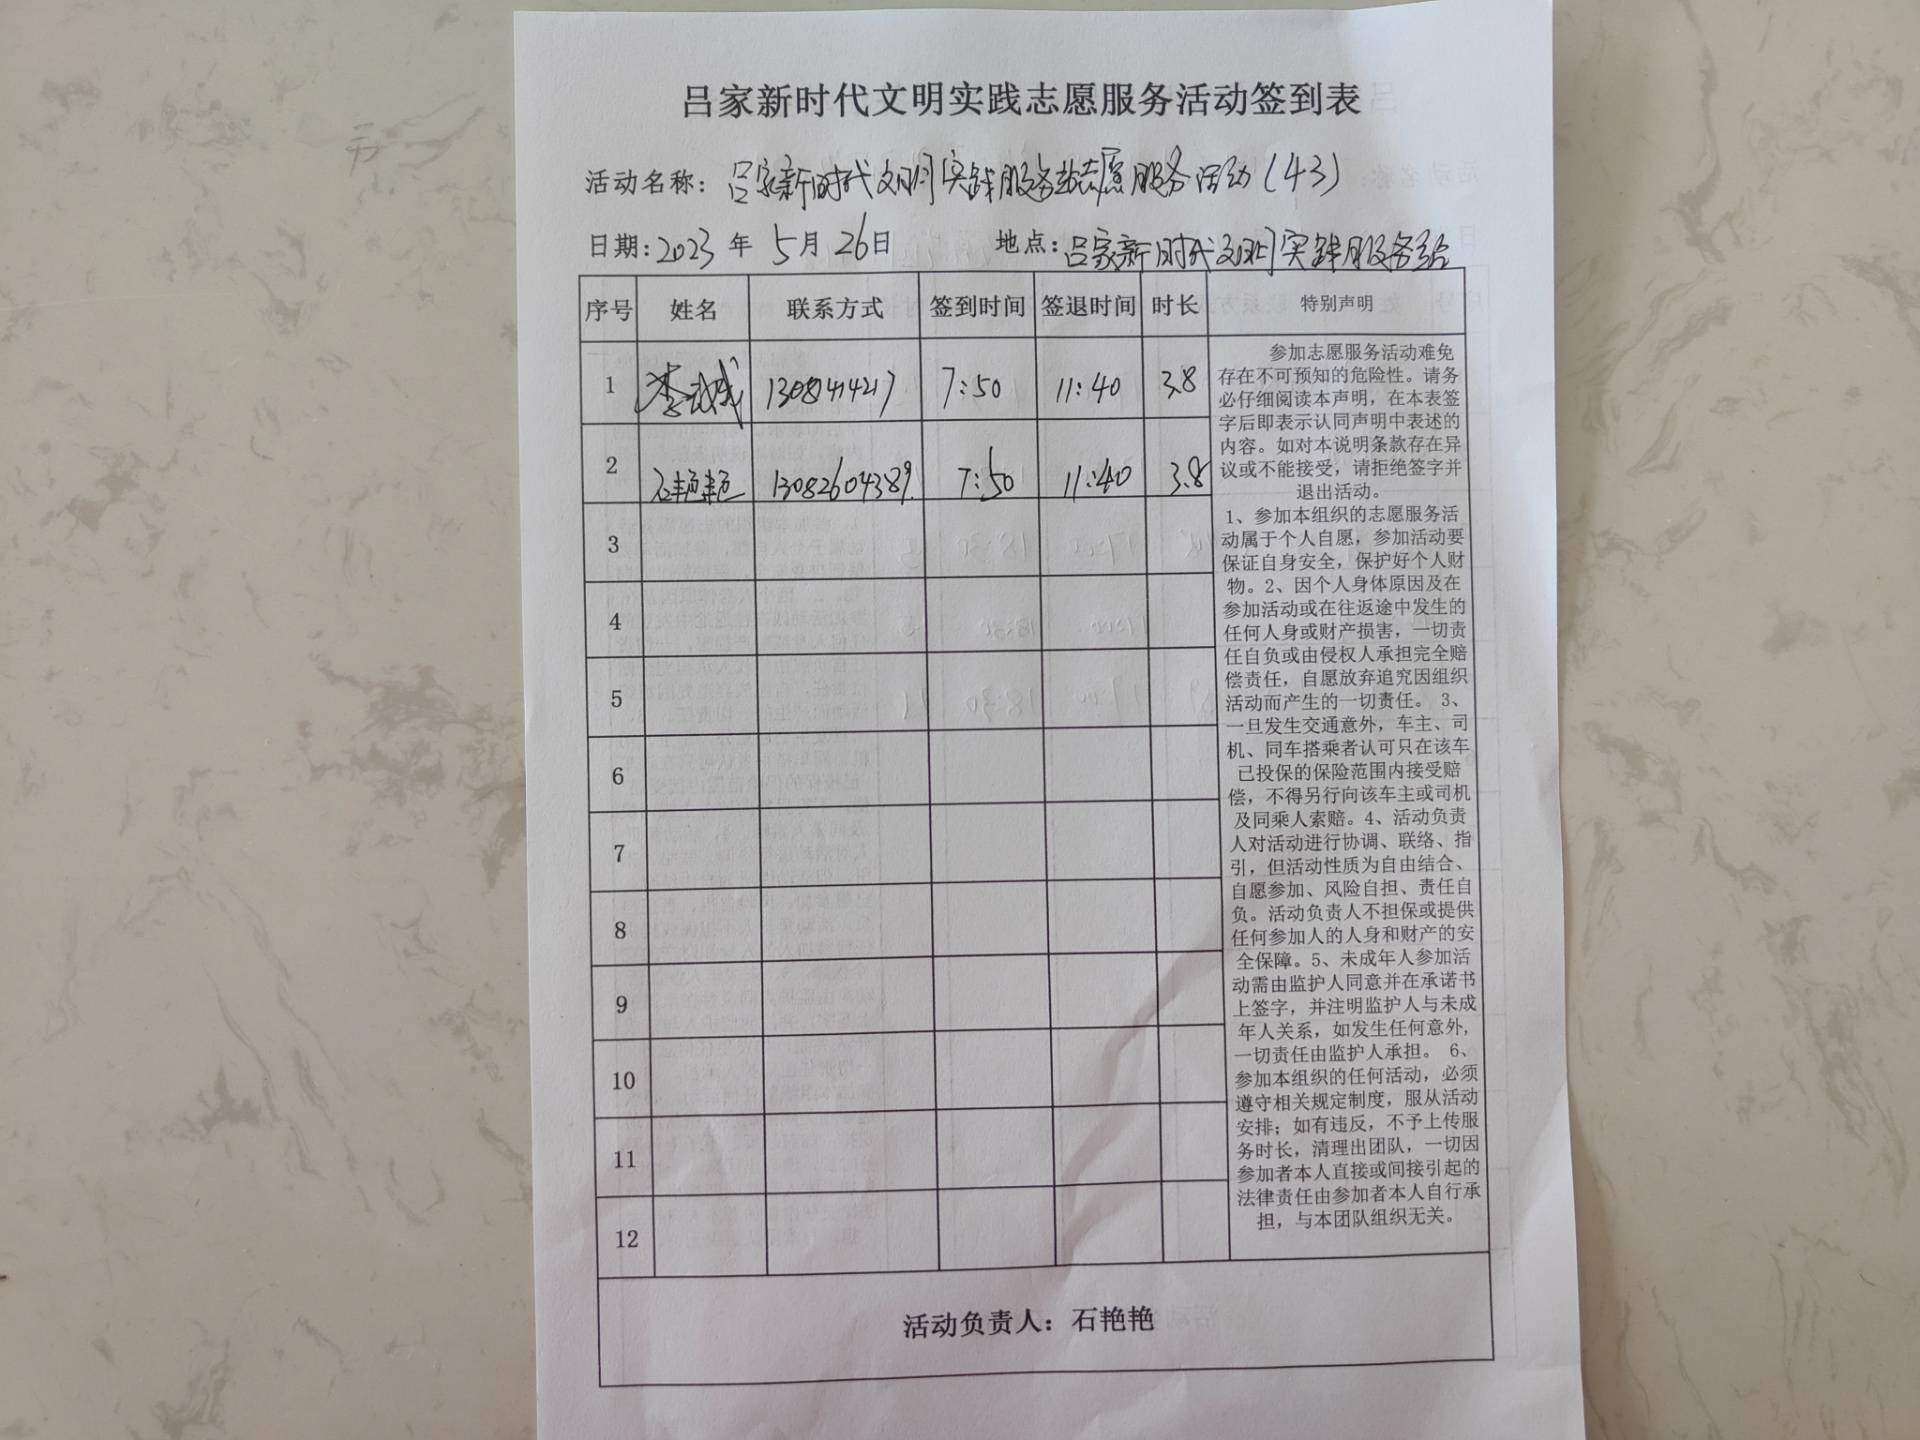 吕家新时代文明实践志愿服务活动签到表
活动名称：吕家新时代文明实践服务站志愿服务活动（43）
日期：2023年 5月 26日 地点：吕家新时代文明实践服务站
序号 姓名 联系方式 签到时间 签退时间 时长 特别声明
1 7:50 11:40 3.8
2 石艳艳 13082604389 7:50 11:40 3.8
3
4
5
6
7
8
9
10
11
12
参加志愿服务活动难免
存在不可预知的危险性。请务
必仔细阅读本声明，在本表签
字后即表示认同声明中表述的
内容。如对本说明条款存在异
议或不能接受，请拒绝签字并
退出活动。
1、参加本组织的志愿服务活
动属于个人自愿，参加活动要
保证自身安全，保护好个人财
物。2、因个人身体原因及在
参加活动或在往返途中发生的
任何人身或财产损害，一切责
任自负或由侵权人承担完全赔
偿责任，自愿放弃追究因组织
活动而产生的一切责任。 3、
一旦发生交通意外，车主、司
机、同车搭乘者认可只在该车
已投保的保险范围内接受赔
偿，不得另行向该车主或司机
及同乘人索赔。4、活动负责
人对活动进行协调、联络、指
引，但活动性质为自由结合、
自愿参加、风险自担、责任自
负。活动负责人不担保或提供
任何参加人的人身和财产的安
全保障。5、未成年人参加活
动需由监护人同意并在承诺书
上签字，并注明监护人与未成
年人关系，如发生任何意外，
一切责任由监护人承担。 6、
参加本组织的任何活动，必须
遵守相关规定制度，服从活动
安排；如有违反，不予上传服
务时长，清理出团队，一切因
参加者本人直接或间接引起的
法律责任由参加者本人自行承
担，与本团队组织无关。
活动负责人：石艳艳